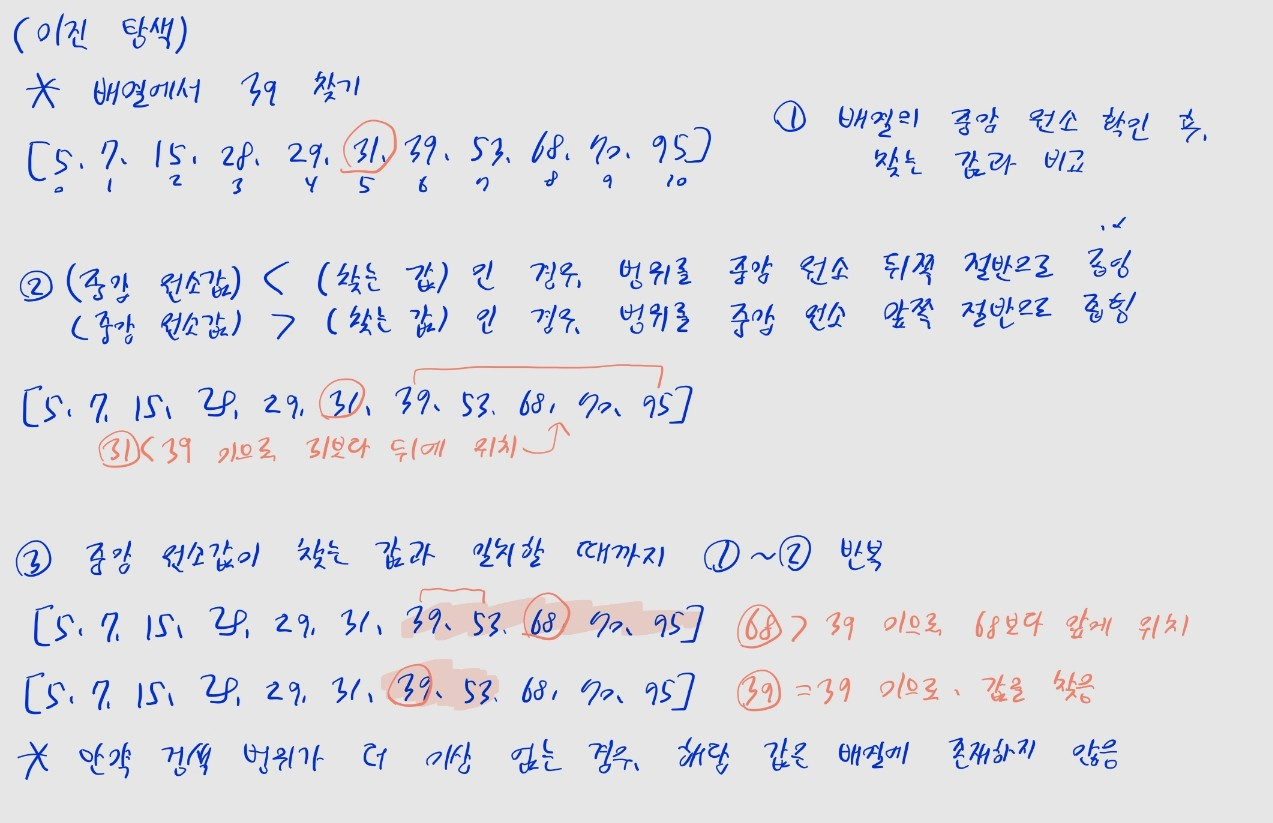 (이진 탐색)
* 배열에서 39 찾기
[5, 7, 15, 28, 29, 31, 39, 53, 68, 70, 95]
0 1 2 3 4 5 6 7 8 9 10
① 배열의 중앙 원소 확인 후,
찾는 값과 비교
② (중앙 원소값) < (찾는 값) 인 경우, 범위를 중앙 원소 뒤쪽 절반으로 좁힘
(중앙 원소값) > (찾는 값) 인 경우, 범위를 중앙 원소 앞쪽 절반으로 좁힘
[5, 7, 15, 28, 29, 31, 39, 53, 68, 70, 95]
31 < 39 이므로, 31보다 뒤에 위치
③ 중앙 원소값이 찾는 값과 일치할 때까지 ①~② 반복
[5, 7, 15, 28, 29, 31, 39, 53, 68, 70, 95] 68 > 39 이므로, 68보다 앞에 위치
[5, 7, 15, 28, 29, 31, 39, 53, 68, 70, 95] 39 = 39 이므로, 값을 찾음
* 만약 검색 범위가 더 이상 없는 경우, 해당 값은 배열에 존재하지 않음